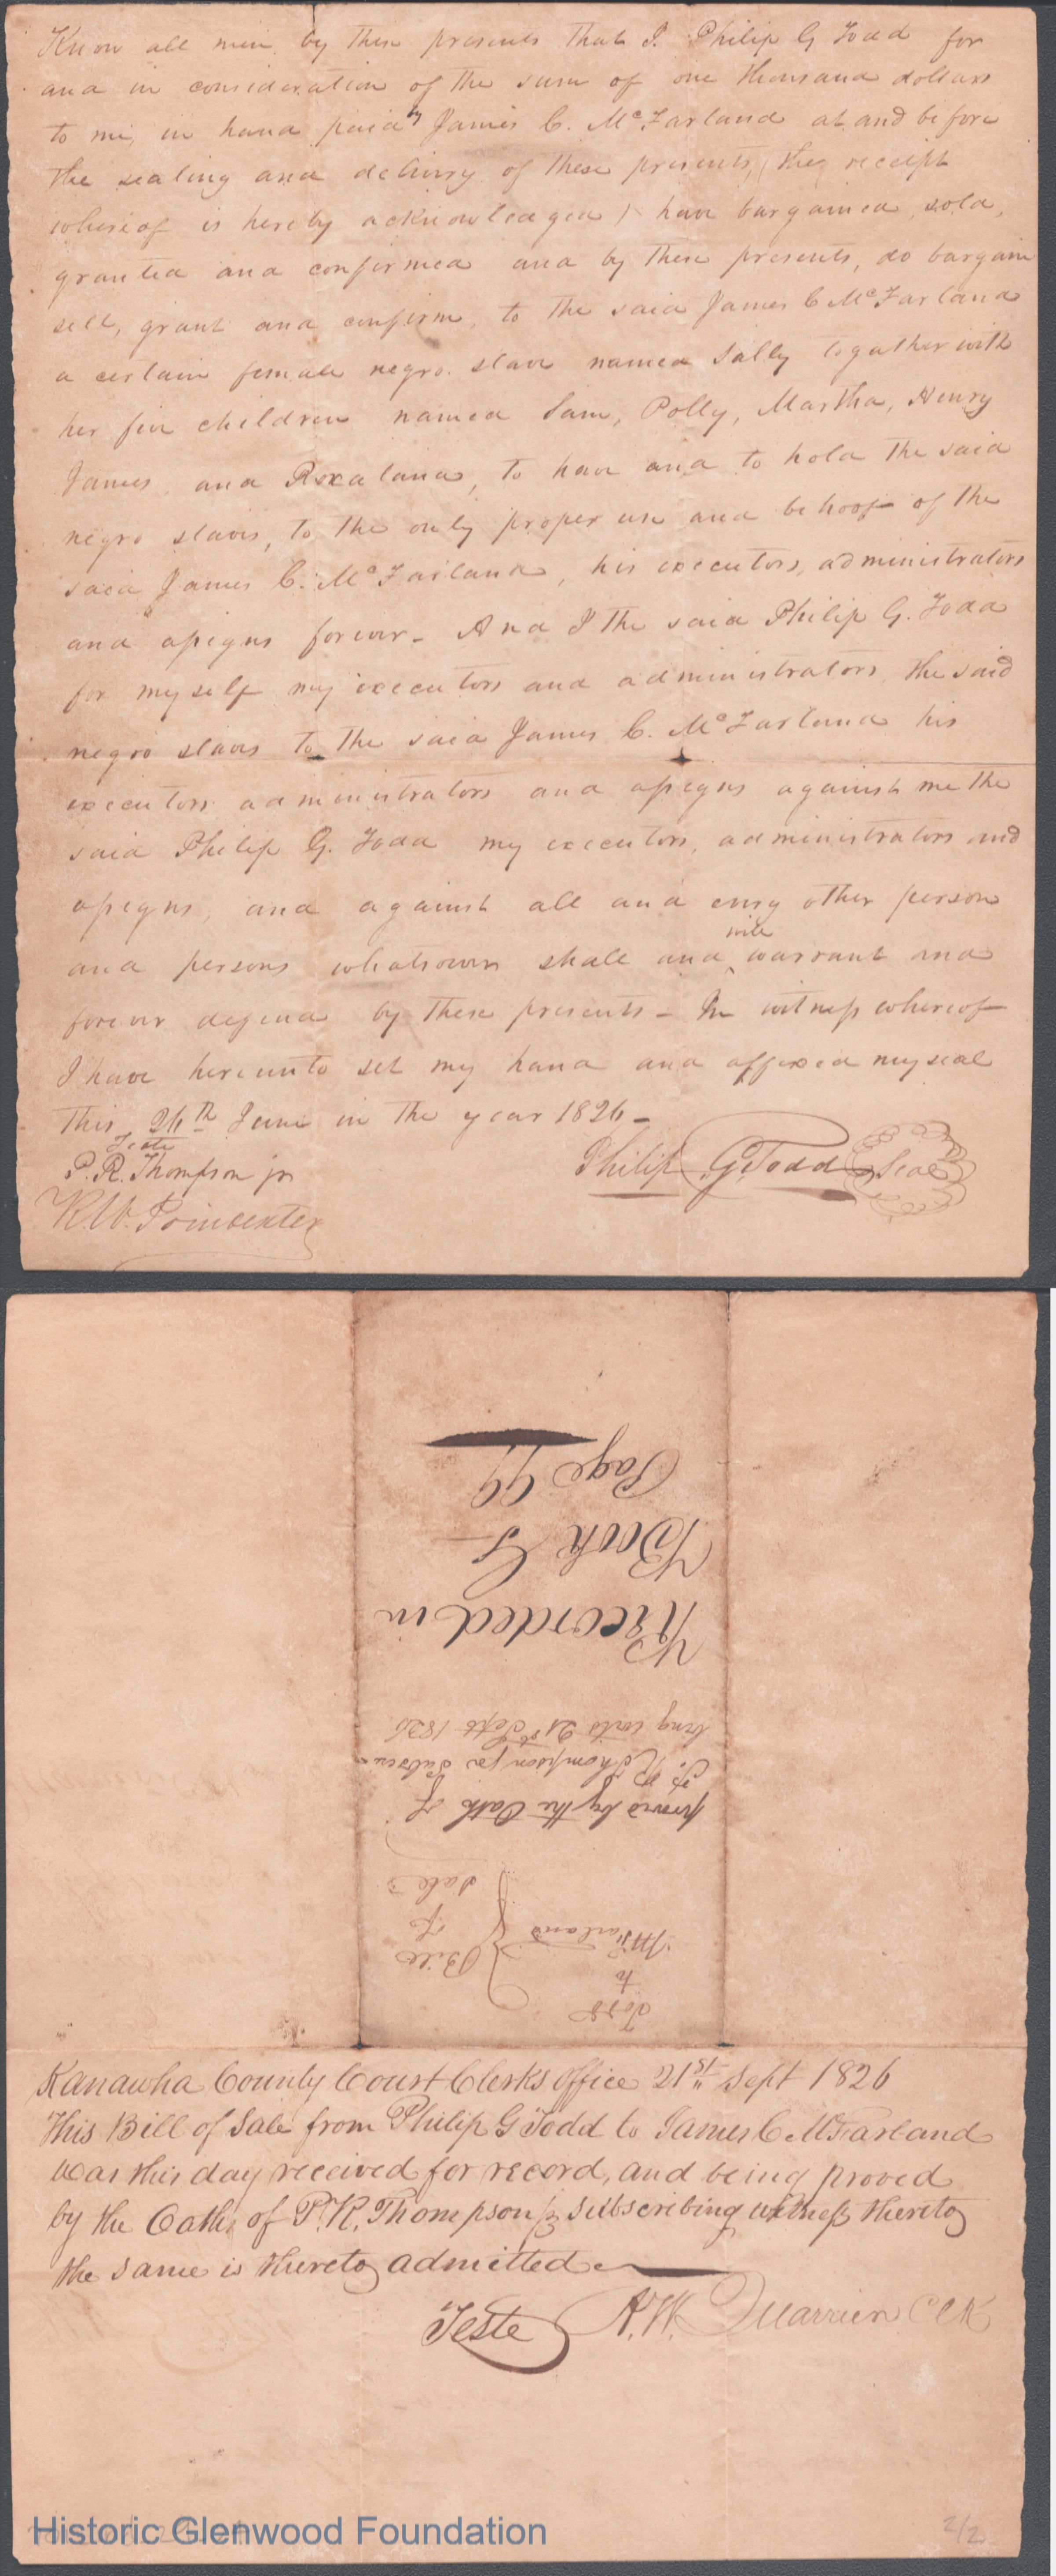 Know all men by these presents that I. Philip G Todd for
and in consideration of the sum of one thousand dollars
to me, in hand paid by James C. McFarland at and before
the sealing and delivery of these presents, (they receipt
whereof is hereby acknowledged) have bargained, sold,
granted and confirmed and by these presents, do bargain
sell, grant and confirm, to the said James C McFarland
a certain female negro slave named Sally together with
her five children named Sam, Polly, Martha, Henry
James, and Roxalana, to have and to hold the said
negro slaves, to the only proper use and behoof of the
said James C. McFarland, his executors, administrators
and assigns forever - And I the said Philip G. Todd
for myself my executors and administrators the said
negro slaves to the said James C. McFarland his
executors administrators and assigns against me the
said Philip G. Todd my executors, administrators and
assigns, and against all and every other person
and persons whatsoever shall and will warrant and
forever defend by these presents - In witness whereof
I have hereunto set my hand and affixed my seal
this 26th June in the year 1826 -
Teste
P. R. Thompson jr
Philip G. Todd Seal
R.W. Poindexter
Todd
to
McFarland
Bill
of
Sale
proved by the Oath of
P R Thompson jr Subscri-
bing witn 21st Sept 1826
Recorded in
Book G
Page 99
Kanawha County Court Clerks Office 21st Sept 1826
This Bill of Sale from Philip G Todd to James C McFarland
was this day received for record, and being proved
by the Oath of P. R. Thompson jr subscribing witness thereto
the same is thereto admitted
Teste A. W. Quarrier Clk
Historic Glenwood Foundation
2/2